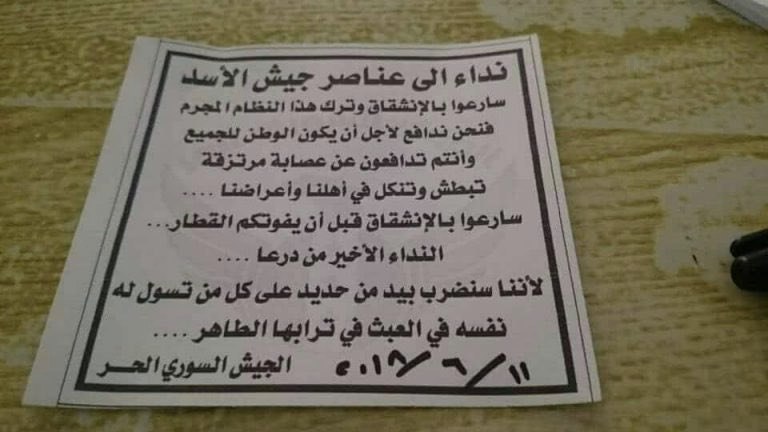 نداء الى عناصر جيش الأسد
سارعوا بالإنشقاق وترك هذا النظام المجرم
فنحن ندافع لأجل أن يكون الوطن للجميع
وأنتم تدافعون عن عصابة مرتزقة
تبطش وتنكل في أهلنا وأعراضنا ....
سارعوا بالإنشقاق قبل أن يفوتكم القطار...
النداء الأخير من درعا ....
لأننا سنضرب بيد من حديد على كل من تسول له
نفسه في العبث في ترابها الطاهر ....
الجيش السوري الحر ١١/٦/٢٠١٨م